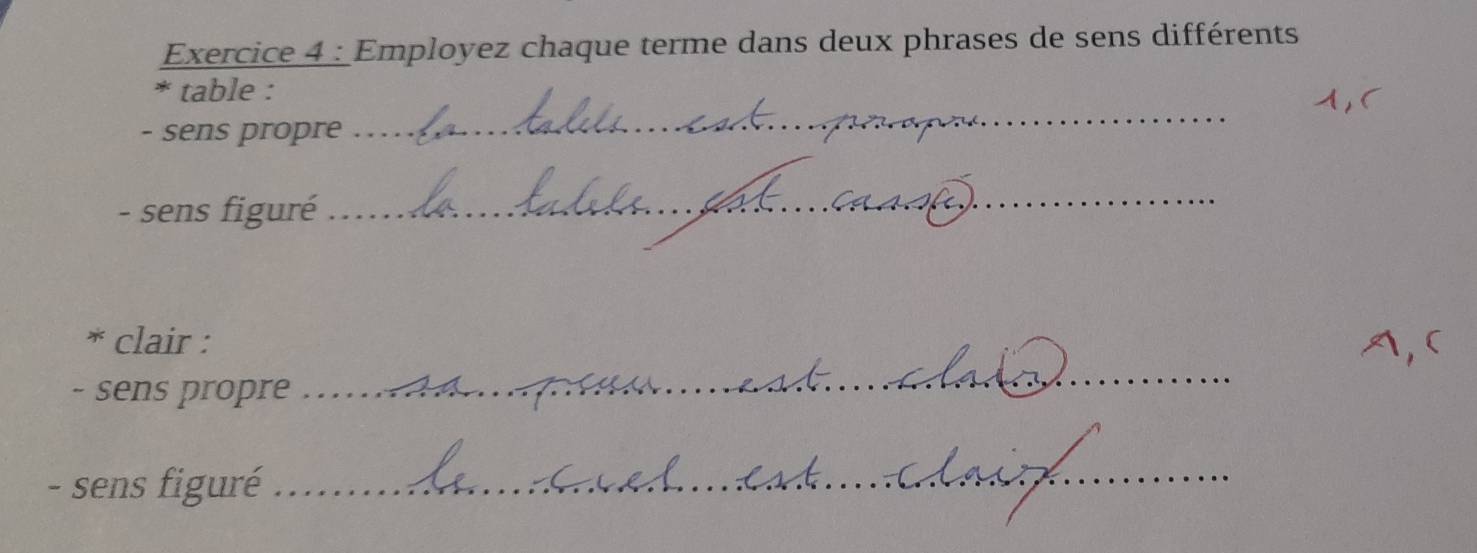 Exercice 4 : Employez chaque terme dans deux phrases de sens différents
* table :
- sens propre ..... la .... table .... est .... propre ....................
1,5
- sens figuré ...... la .... table .... est .... cassé ....................
* clair :
1,5
- sens propre ...... sa .... peau .... est .... clair ..............
- sens figuré .......... le .... ciel .... est .... clair ..............